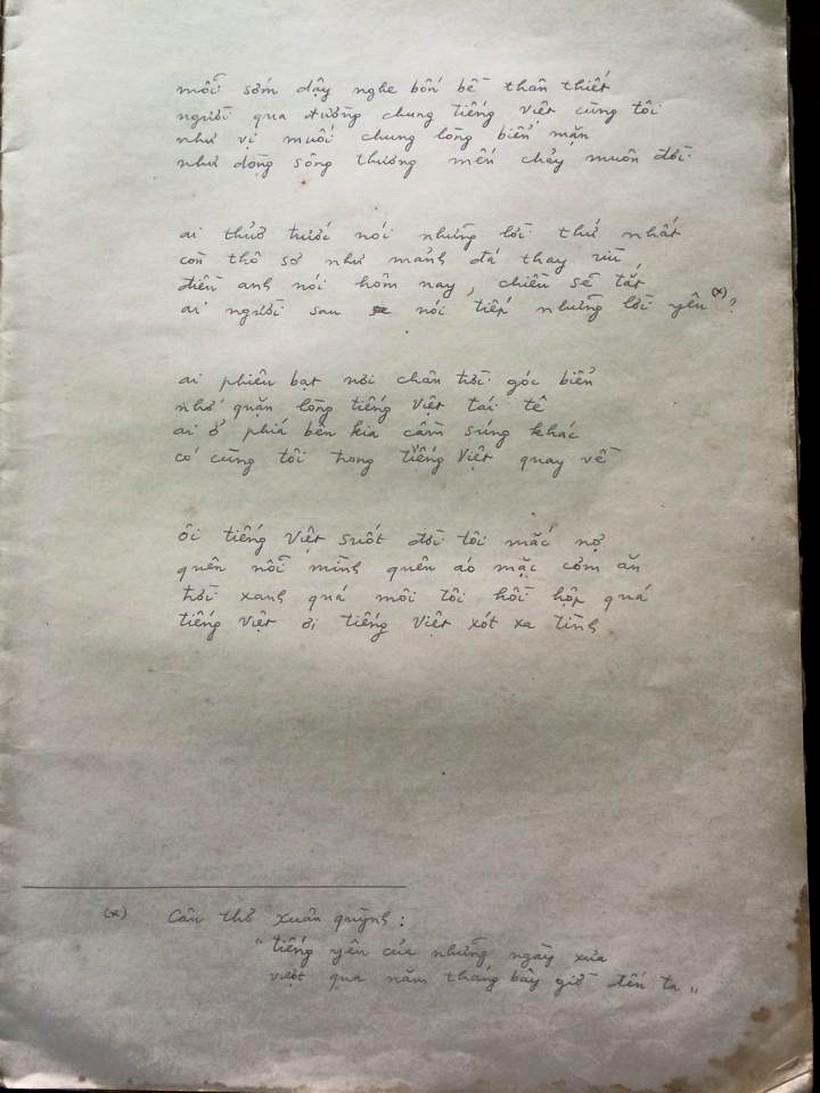 mỗi sớm dậy nghe bốn bề thân thiết
người qua đường chung tiếng Việt cùng tôi
như vị muối chung lòng biển mặn
như dòng sông thương mến chảy muôn đời

ai thuở trước nói những lời thứ nhất
còn thô sơ như mảnh đá thay rìu
điều anh nói hôm nay, chiều sẽ tắt
ai người sau nói tiếp những lời yêu (x) ?

ai phiêu bạt nơi chân trời góc biển
nhớ quặn lòng tiếng Việt tái tê
ai ở phía bên kia cầm súng khác
có cùng tôi trong tiếng Việt quay về

ôi tiếng Việt suốt đời tôi mắc nợ
quên nỗi mình quên áo mặc cơm ăn
trời xanh quá môi tôi hồi hộp quá
tiếng Việt ơi tiếng Việt xót xa tình

(x) Câu thơ Xuân Quỳnh :
"tiếng yêu của những ngày xưa
vượt qua năm tháng bây giờ đến ta"